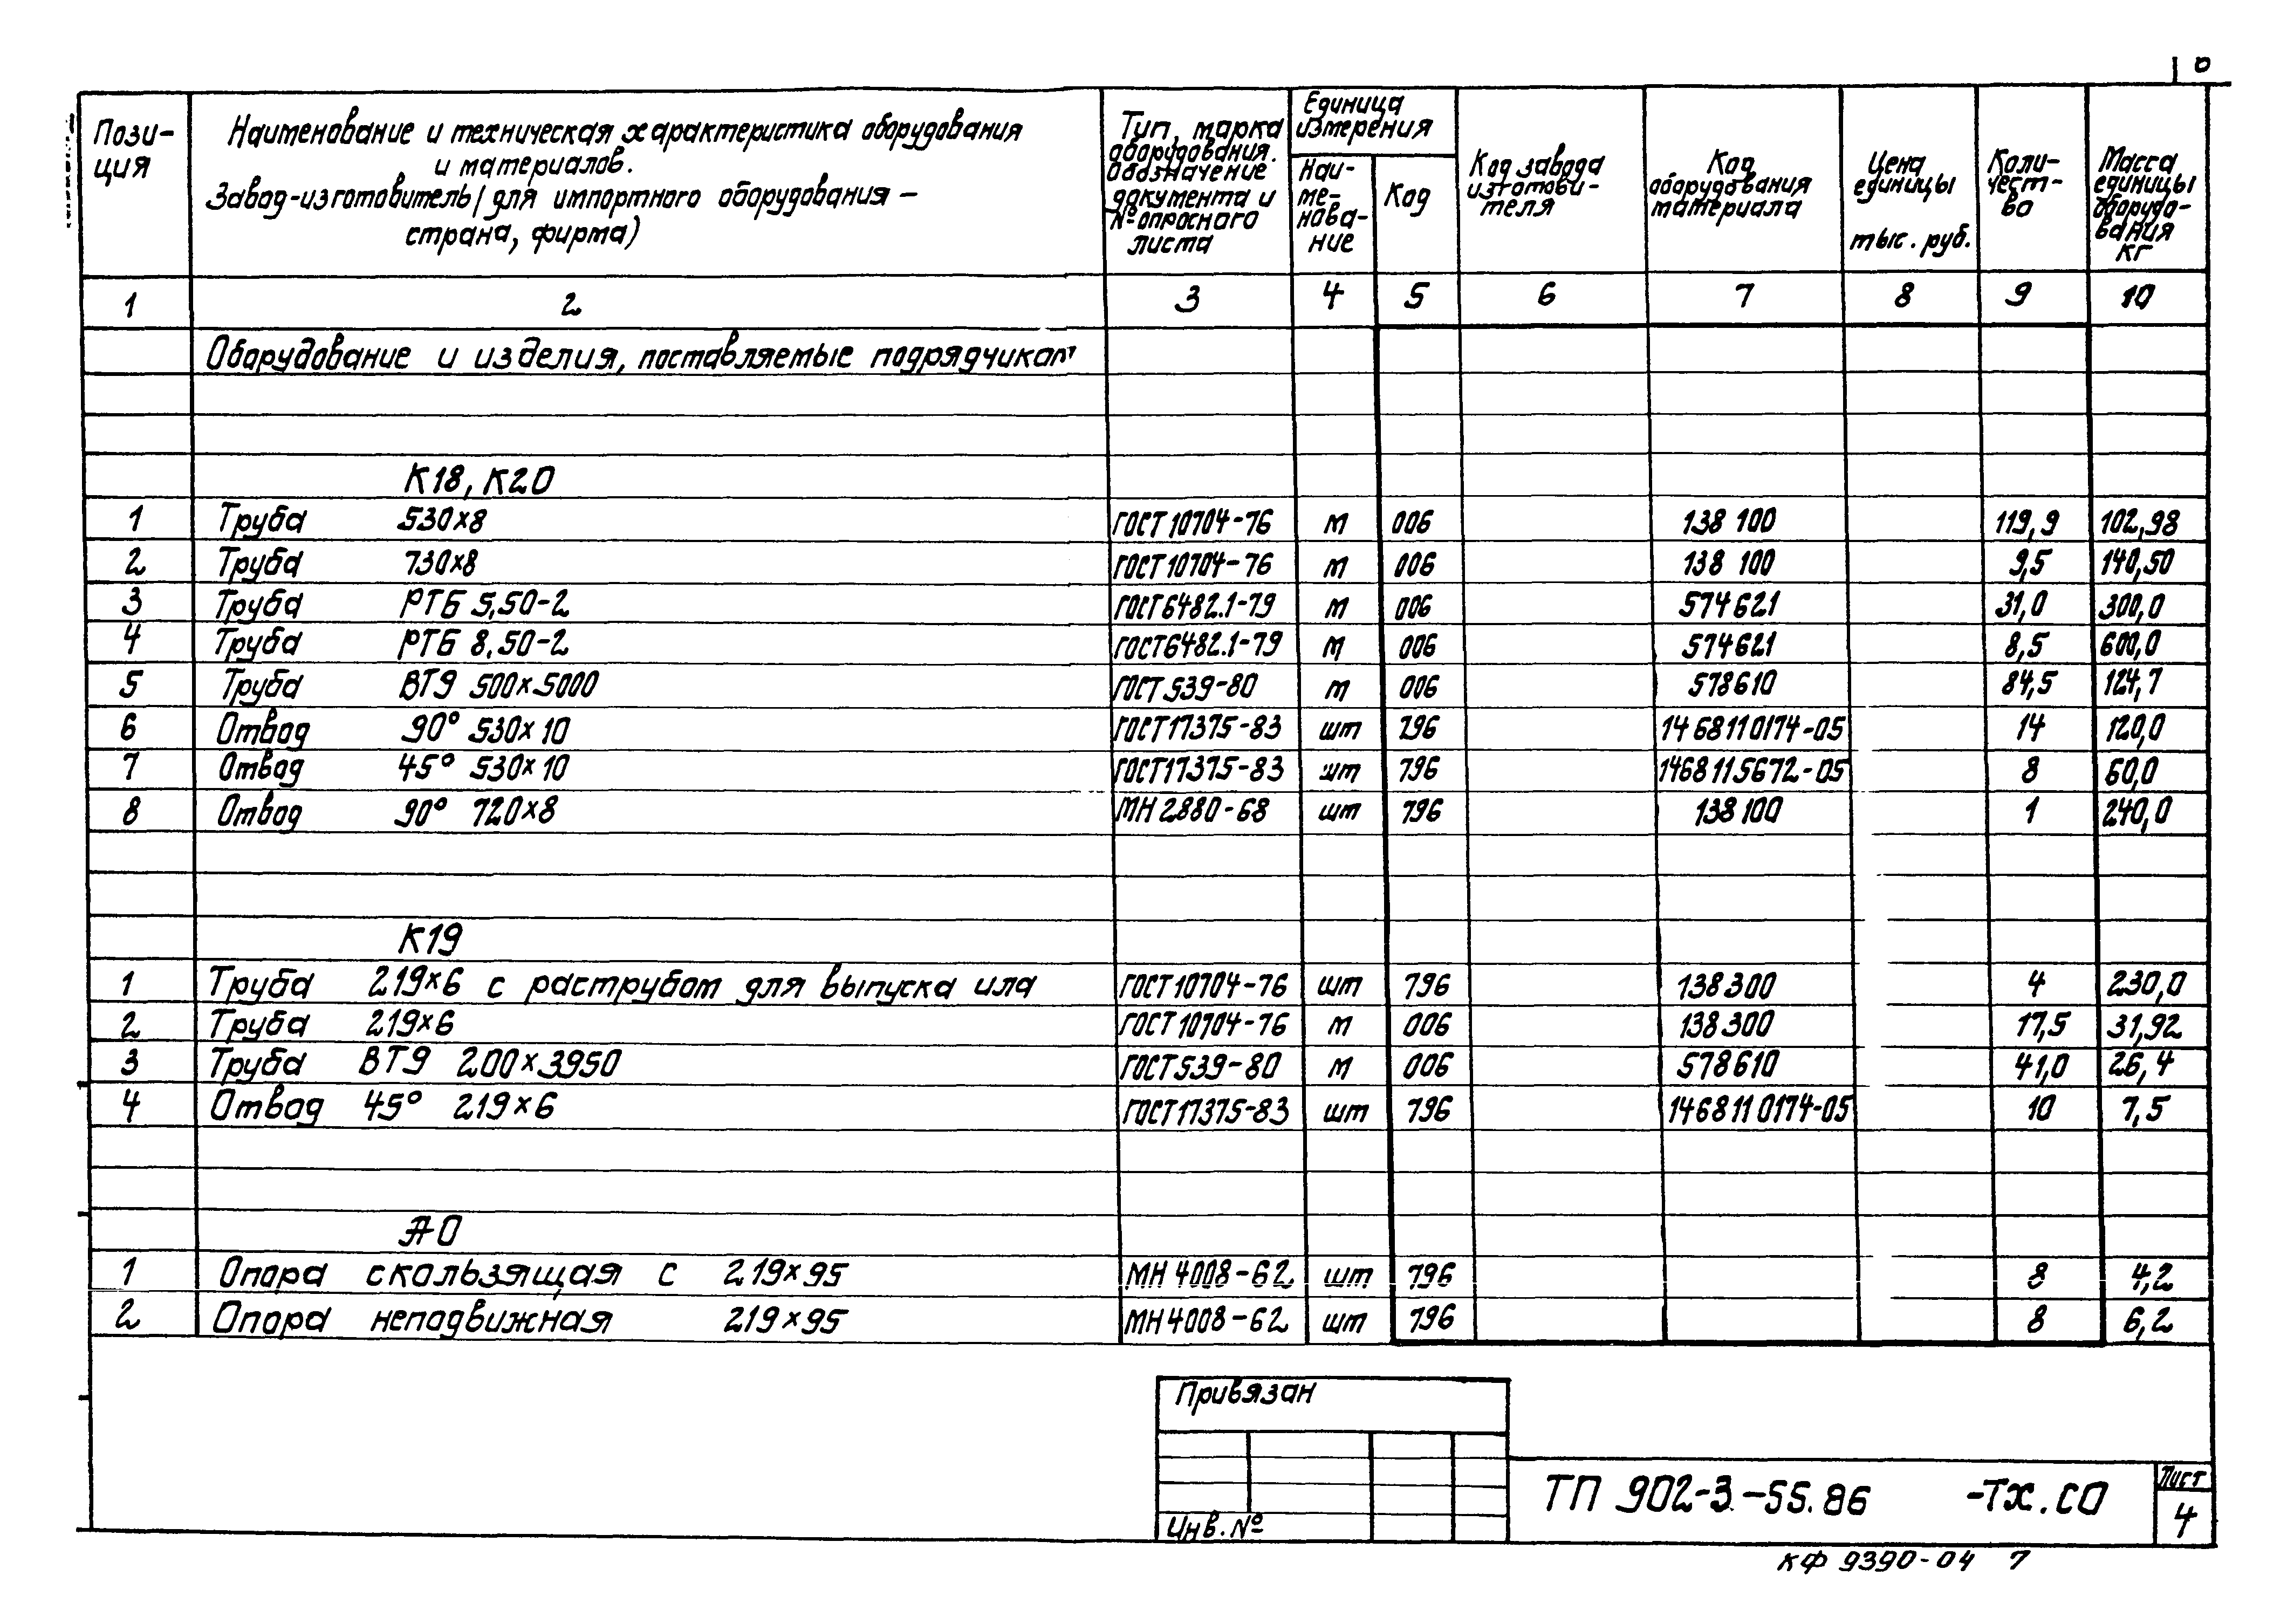 6
Пози-
ция
Наименование и техническая характеристика оборудования
и материалов.
Завод-изготовитель (для импортного оборудования –
страна, фирма)
Тип, марка
оборудования.
Обозначение
документа и
№ опросного
листа
Единица
измерения
Наи-
ме-
нова-
ние
Код
Код завода
изготови-
теля
Код
оборудования
материала
Цена
единицы
тыс. руб.
Коли-
чест-
во
Масса
единицы
оборудо-
вания
кг
1 2 3 4 5 6 7 8 9 10
Оборудование и изделия, поставляемые подрядчиком
К18, К20
1 Труба 530×8 ГОСТ 10704-76 м 006 138 100 119,9 102,98
2 Труба 730×8 ГОСТ 10704-76 м 006 138 100 9,5 140,50
3 Труба РТБ 5,50-2 ГОСТ 6482.1-79 м 006 574621 31,0 300,0
4 Труба РТБ 8.50-2 ГОСТ 6482.1-79 м 006 574621 8,5 600,0
5 Труба ВТ9 500×5000 ГОСТ 539-80 м 006 578610 84,5 124,7
6 Отвод 90° 530×10 ГОСТ 17375-83 шт 796 14 68110174-05 14 120,0
7 Отвод 45° 530×10 ГОСТ 17375-83 шт 796 1468115672-05 8 60,0
8 Отвод 90° 720×8 МН 2880-68 шт 796 138 100 1 240,0
К19
1 Труба 219×6 с раструбом для выпуска ила ГОСТ 10704-76 шт 796 138300 4 230,0
2 Труба 219×6 ГОСТ 10704-76 м 006 138300 17,5 31,92
3 Труба ВТ9 200×3950 ГОСТ 539-80 м 006 578610 41,0 26,4
4 Отвод 45° 219×6 ГОСТ 17375-83 шт 796 1468110174-05 10 7,5
А0
1 Опора скользящая С 219×95 МН 4008-62 шт 796 8 4,2
2 Опора неподвижная 219×95 МН 4008-62 шт 796 8 6,2
Привязан
Инв. №
ТП 902-3-55.86 -ТХ.СО
Лист
4
КФ 9390-04 7